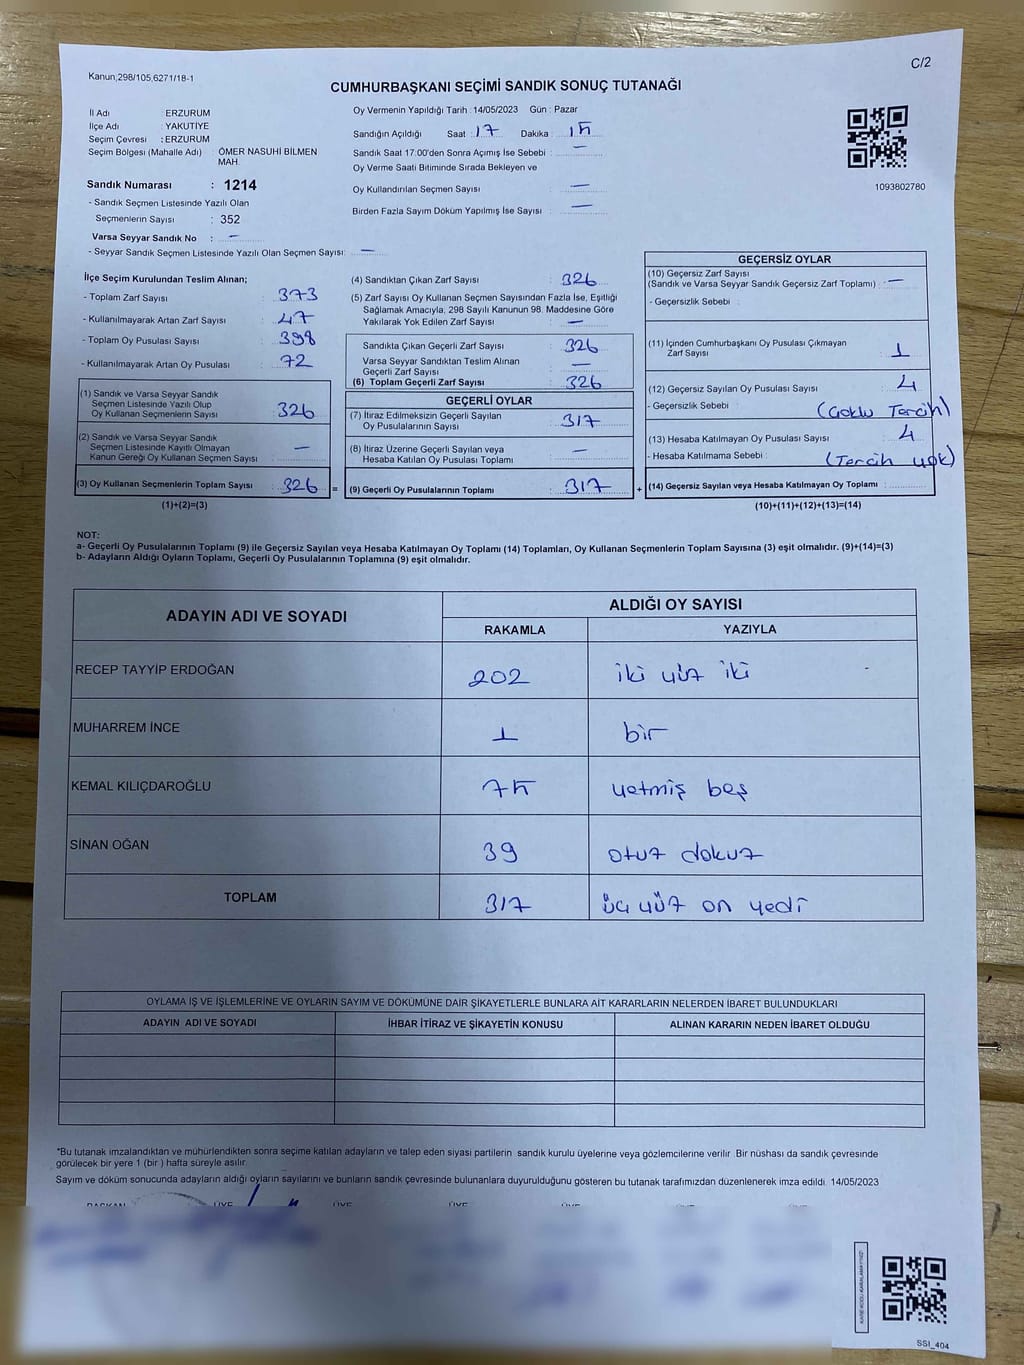 Kanun,298/105,6271/18-1
C/2
CUMHURBAŞKANI SEÇİMİ SANDIK SONUÇ TUTANAĞI
İl Adı : ERZURUM
İlçe Adı : YAKUTİYE
Seçim Çevresi : ERZURUM
Seçim Bölgesi (Mahalle Adı) : ÖMER NASUHİ BİLMEN MAH.
Sandık Numarası : 1214
- Sandık Seçmen Listesinde Yazılı Olan
Seçmenlerin Sayısı : 352
Varsa Seyyar Sandık No : —
- Seyyar Sandık Seçmen Listesinde Yazılı Olan Seçmen Sayısı: —
Oy Vermenin Yapıldığı Tarih : 14/05/2023 Gün : Pazar
Sandığın Açıldığı Saat : 17 Dakika : 15
Sandık Saat 17:00'den Sonra Açımış İse Sebebi : —
Oy Verme Saati Bitiminde Sırada Bekleyen ve
Oy Kullandırılan Seçmen Sayısı : —
Birden Fazla Sayım Döküm Yapılmış İse Sayısı : —
1093802780
İlçe Seçim Kurulundan Teslim Alınan;
- Toplam Zarf Sayısı : 373
- Kullanılmayarak Artan Zarf Sayısı : 47
- Toplam Oy Pusulası Sayısı : 398
- Kullanılmayarak Artan Oy Pusulası : 72
(1) Sandık ve Varsa Seyyar Sandık
Seçmen Listesinde Yazılı Olup
Oy Kullanan Seçmenlerin Sayısı : 326
(2) Sandık ve Varsa Seyyar Sandık
Seçmen Listesinde Kayıtlı Olmayan
Kanun Gereği Oy Kullanan Seçmen Sayısı : —
(3) Oy Kullanan Seçmenlerin Toplam Sayısı : 326 =
(1)+(2)=(3)
(4) Sandıktan Çıkan Zarf Sayısı : 326
(5) Zarf Sayısı Oy Kullanan Seçmen Sayısından Fazla İse, Eşitliği
Sağlamak Amacıyla; 298 Sayılı Kanunun 98. Maddesine Göre
Yakılarak Yok Edilen Zarf Sayısı : —
Sandıkta Çıkan Geçerli Zarf Sayısı : 326
Varsa Seyyar Sandıktan Teslim Alınan
Geçerli Zarf Sayısı : —
(6) Toplam Geçerli Zarf Sayısı : 326
GEÇERLİ OYLAR
(7) İtiraz Edilmeksizin Geçerli Sayılan
Oy Pusulalarının Sayısı : 317
(8) İtiraz Üzerine Geçerli Sayılan veya
Hesaba Katılan Oy Pusulası Toplamı : —
(9) Geçerli Oy Pusulalarının Toplamı : 317 +
GEÇERSİZ OYLAR
(10) Geçersiz Zarf Sayısı
(Sandık ve Varsa Seyyar Sandık Geçersiz Zarf Toplamı) : —
- Geçersizlik Sebebi :
(11) İçinden Cumhurbaşkanı Oy Pusulası Çıkmayan
Zarf Sayısı : 1
(12) Geçersiz Sayılan Oy Pusulası Sayısı : 4
- Geçersizlik Sebebi : (Çoklu Tercih)
(13) Hesaba Katılmayan Oy Pusulası Sayısı : 4
- Hesaba Katılmama Sebebi : (Tercih yok)
(14) Geçersiz Sayılan veya Hesaba Katılmayan Oy Toplamı :
(10)+(11)+(12)+(13)=(14)
NOT:
a- Geçerli Oy Pusulalarının Toplamı (9) ile Geçersiz Sayılan veya Hesaba Katılmayan Oy Toplamı (14) Toplamları, Oy Kullanan Seçmenlerin Toplam Sayısına (3) eşit olmalıdır. (9)+(14)=(3)
b- Adayların Aldığı Oyların Toplamı, Geçerli Oy Pusulalarının Toplamına (9) eşit olmalıdır.
ADAYIN ADI VE SOYADI
ALDIĞI OY SAYISI
RAKAMLA YAZIYLA
RECEP TAYYİP ERDOĞAN 202 iki yüz iki
MUHARREM İNCE 1 bir
KEMAL KILIÇDAROĞLU 75 yetmiş beş
SİNAN OĞAN 39 otuz dokuz
TOPLAM 317 üç yüz on yedi
OYLAMA İŞ VE İŞLEMLERİNE VE OYLARIN SAYIM VE DÖKÜMÜNE DAİR ŞİKAYETLERLE BUNLARA AİT KARARLARIN NELERDEN İBARET BULUNDUKLARI
ADAYIN ADI VE SOYADI İHBAR İTİRAZ VE ŞİKAYETİN KONUSU ALINAN KARARIN NEDEN İBARET OLDUĞU
*Bu tutanak imzalandıktan ve mühürlendikten sonra seçime katılan adayların ve talep eden siyasi partilerin sandık kurulu üyelerine veya gözlemcilerine verilir. Bir nüshası da sandık çevresinde
görülecek bir yere 1 (bir ) hafta süreyle asılır.
Sayım ve döküm sonucunda adayların aldığı oyların sayılarını ve bunların sandık çevresinde bulunanlara duyurulduğunu gösteren bu tutanak tarafımızdan düzenlenerek imza edildi. 14/05/2023
BAŞKAN ÜYE ÜYE ÜYE ÜYE ÜYE ÜYE
SSI_404